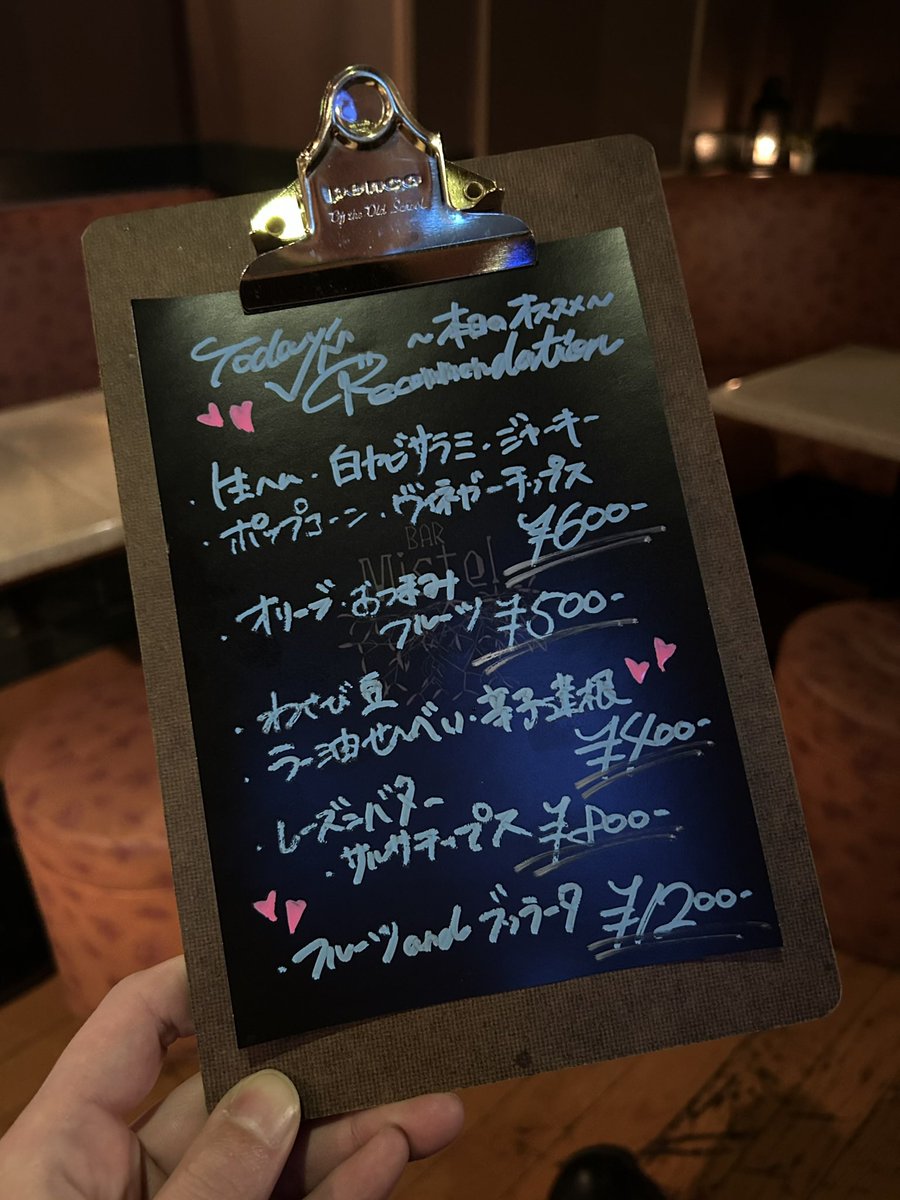 penco
Off the Old School
Today's ～本日のオススメ～
Recommendation
・生ハム・白カビサラミ・ジャーキー
・ポップコーン・ヴィネガーチップス
¥600-
BAR
Mistel
・オリーブ・おつまみ
フルーツ ¥500-
・わさび豆
・ラー油せんべい・辛子蓮根
¥400-
・レーズンバター
・サルサチップス ¥800-
・フルーツandブッラータ ¥1200-